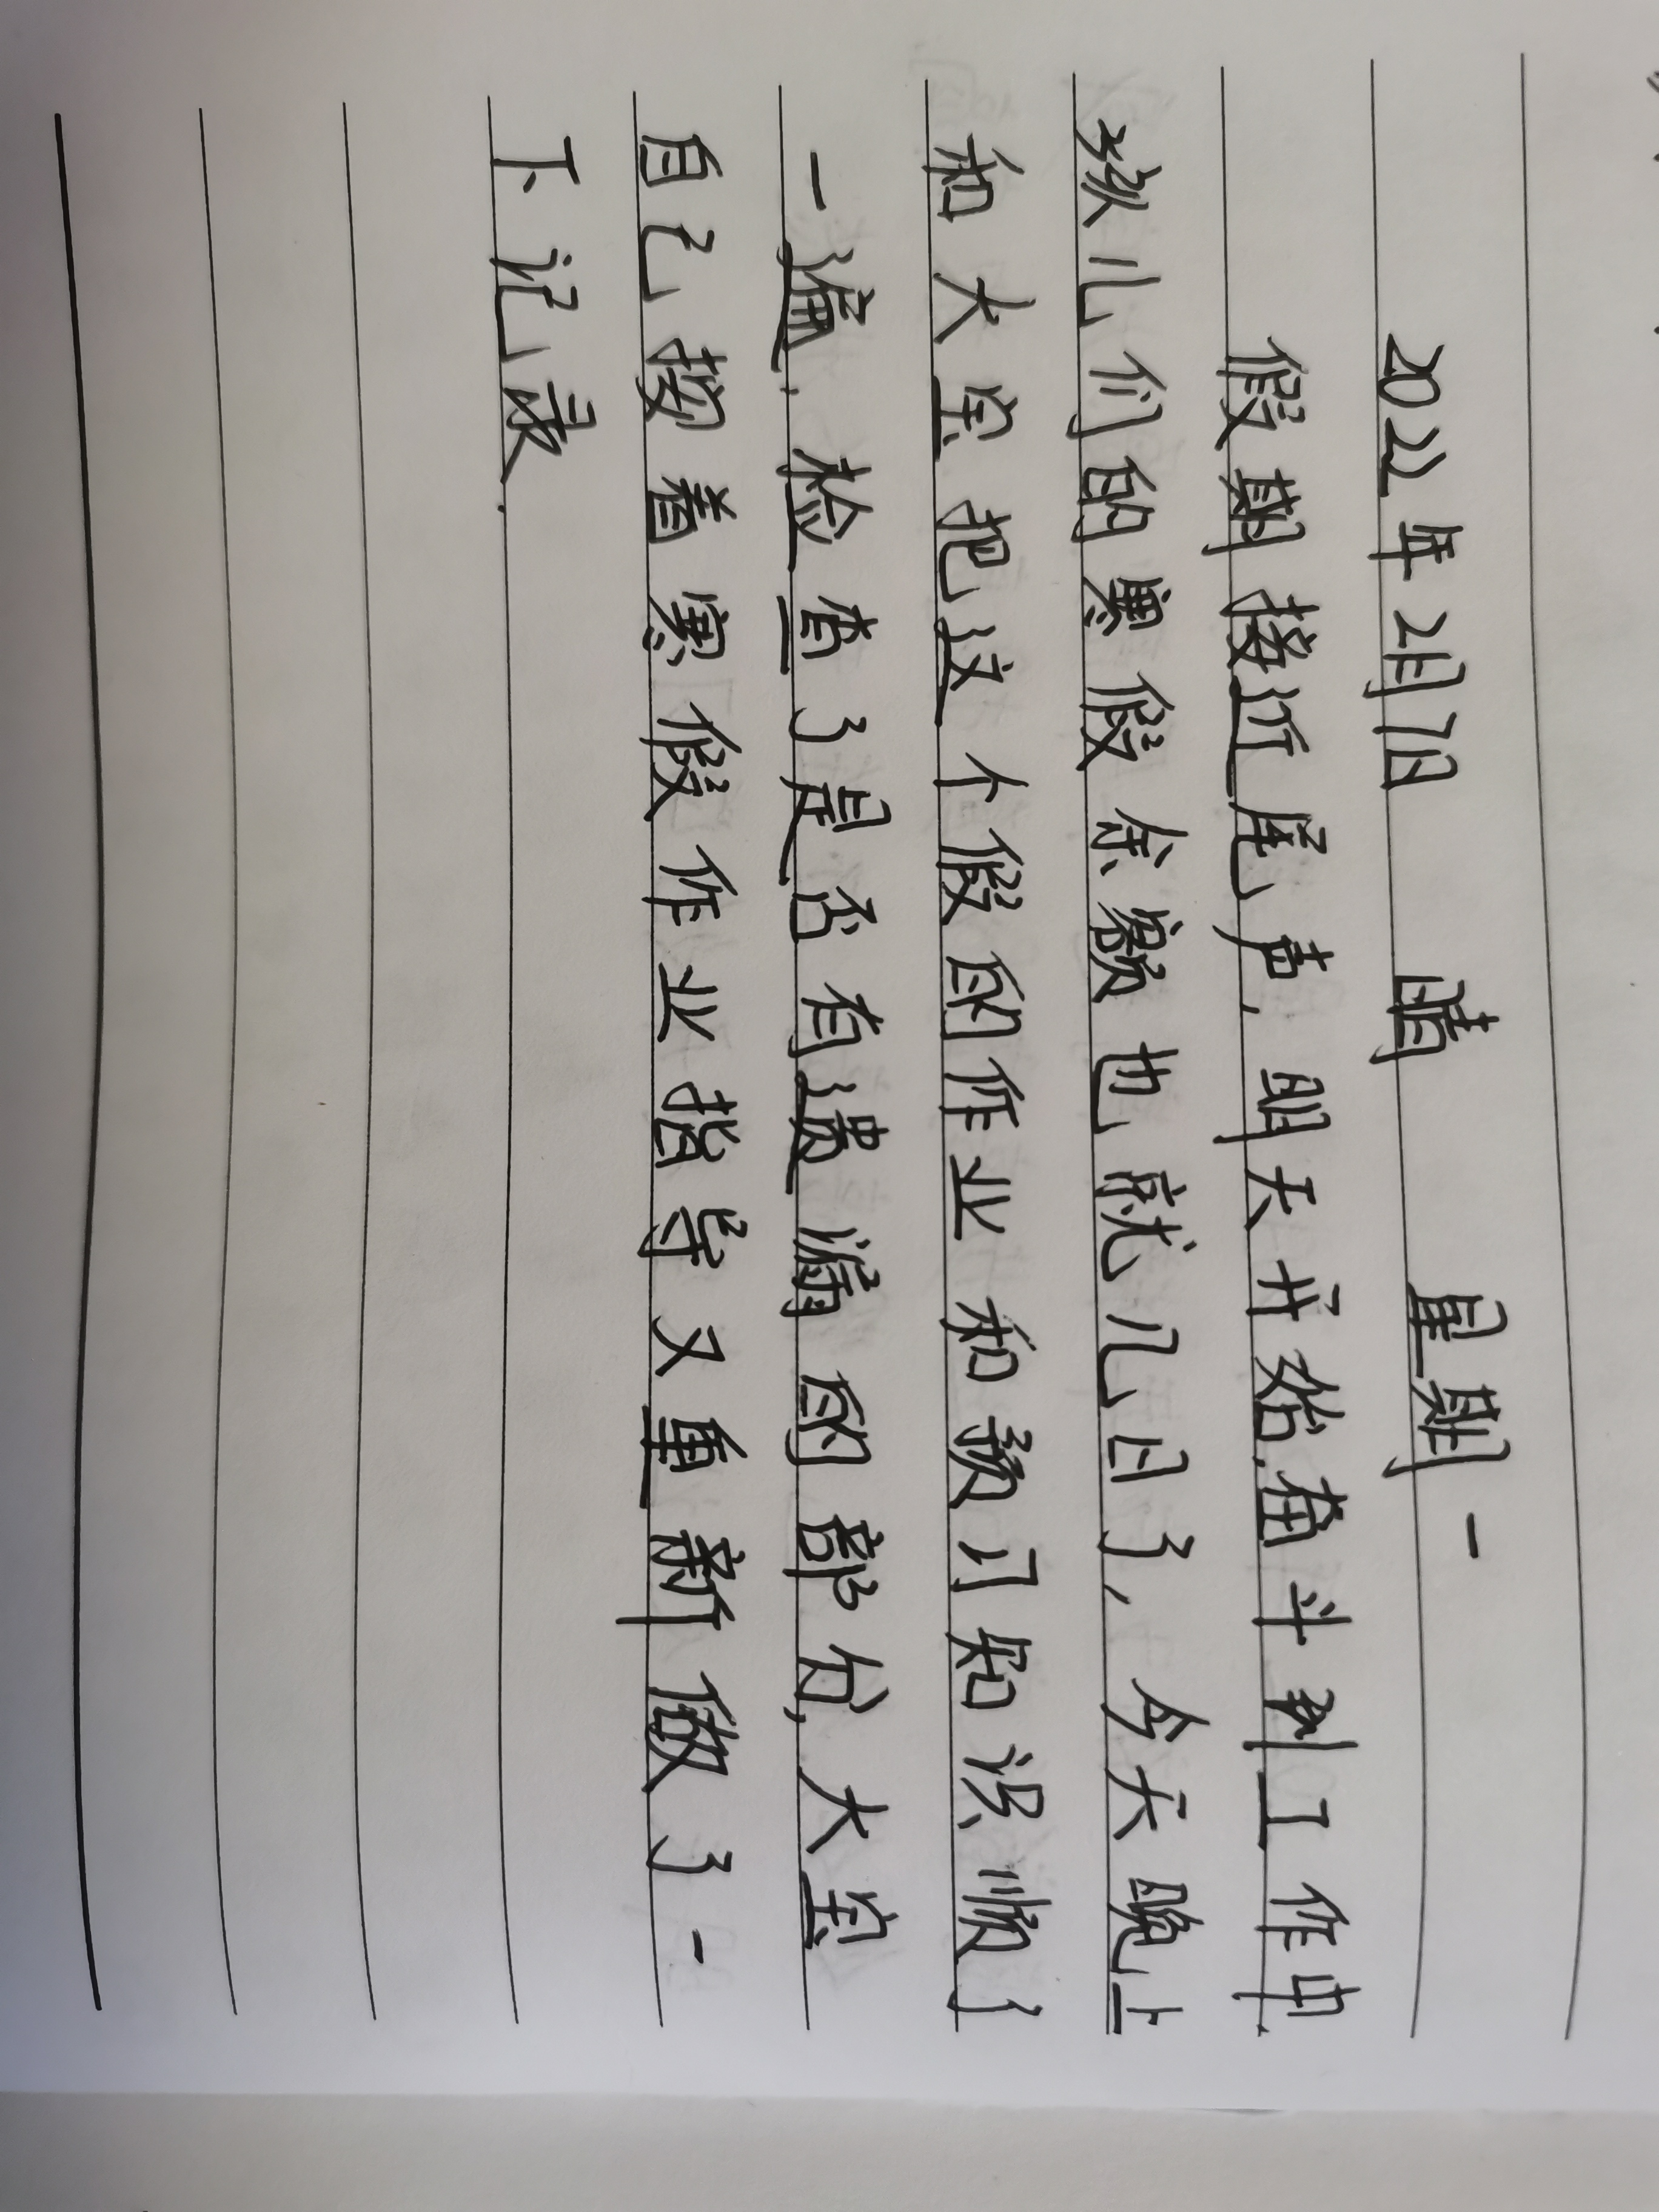 2022年2月7日 晴 星期一
假期接近尾声,明天开始,奋斗到工作中,
孩儿们的寒假余额也就几日了,今天晚上
和大宝把这个假的作业和预习知识顺了
一遍,检查了是否有遗漏的部分,大宝
自己按着寒假作业指导又重新做了一
下记录.